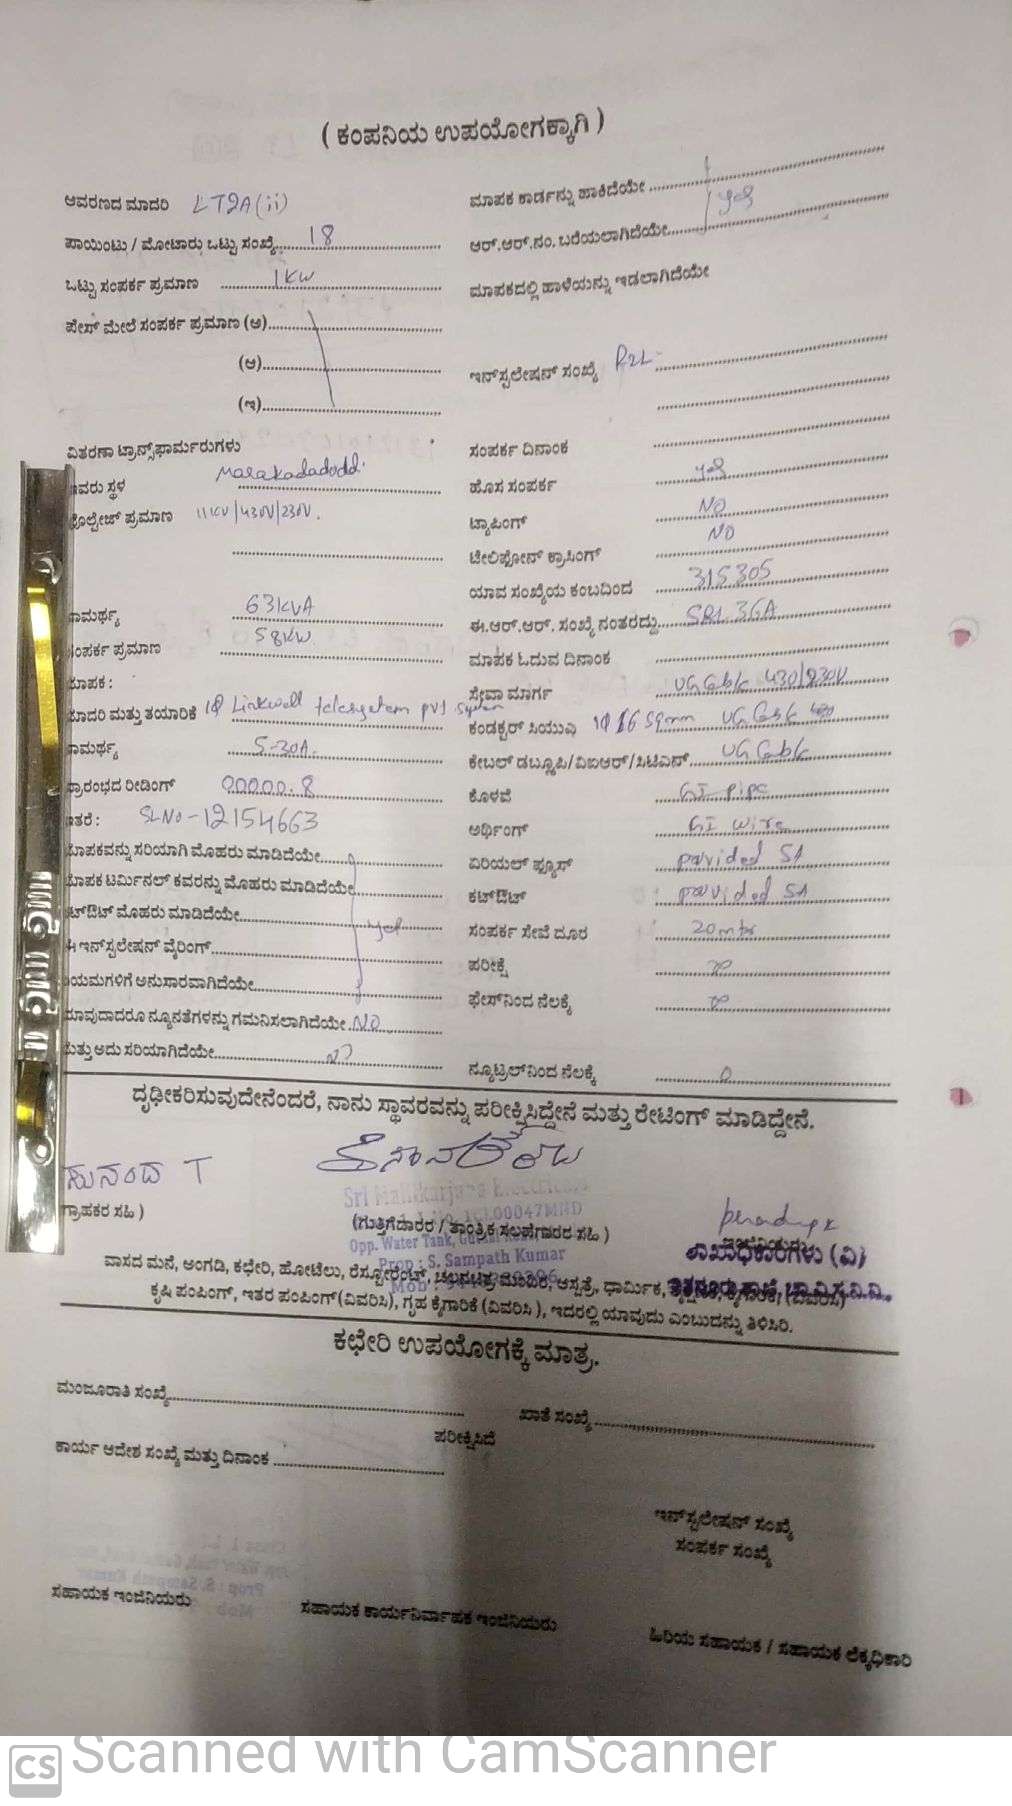 ( ಕಂಪನಿಯ ಉಪಯೋಗಕ್ಕಾಗಿ )
ಆವರಣದ ಮಾದರಿ LT2A(ii)
ಪಾಯಿಂಟು / ಮೋಟಾರು ಒಟ್ಟು ಸಂಖ್ಯೆ 18
ಒಟ್ಟು ಸಂಪರ್ಕ ಪ್ರಮಾಣ 1KW
ಪೇಸ್ ಮೇಲೆ ಸಂಪರ್ಕ ಪ್ರಮಾಣ (ಅ)
(ಆ)
(ಇ)
ವಿತರಣಾ ಟ್ರಾನ್ಸ್‌ಫಾರ್ಮರುಗಳು
ಸ್ಥಳ Marakadadoddi
ಪ್ರಮಾಣ 11KV/430V/230V.
63KVA
ಪ್ರಮಾಣ 58KW.
ಮತ್ತು ತಯಾರಿಕೆ 1Φ Linkwell telesystem pvt system
5-30A.
ರೀಡಿಂಗ್ 00000.8
SLNO-12154663
ಸರಿಯಾಗಿ ಮೊಹರು ಮಾಡಿದೆಯೇ
ಟರ್ಮಿನಲ್ ಕವರನ್ನು ಮೊಹರು ಮಾಡಿದೆಯೇ
ಮೊಹರು ಮಾಡಿದೆಯೇ
ಇನ್‌ಸ್ಟಲೇಷನ್ ವೈರಿಂಗ್ yes
ಅನುಸಾರವಾಗಿದೆಯೇ
ನ್ಯೂನತೆಗಳನ್ನು ಗಮನಿಸಲಾಗಿದೆಯೇ NO
ಅದು ಸರಿಯಾಗಿದೆಯೇ
ಮಾಪಕ ಕಾರ್ಡನ್ನು ಹಾಕಿದೆಯೇ
ಆರ್.ಆರ್.ನಂ. ಬರೆಯಲಾಗಿದೆಯೇ yes
ಮಾಪಕದಲ್ಲಿ ಹಾಳೆಯನ್ನು ಇಡಲಾಗಿದೆಯೇ
ಇನ್‌ಸ್ಟಲೇಷನ್ ಸಂಖ್ಯೆ
ಸಂಪರ್ಕ ದಿನಾಂಕ
ಹೊಸ ಸಂಪರ್ಕ yes
ಟ್ಯಾಪಿಂಗ್ NO
ಟೇಲಿಫೋನ್ ಕ್ರಾಸಿಂಗ್ NO
ಯಾವ ಸಂಖ್ಯೆಯ ಕಂಬದಿಂದ 315305
ಈ.ಆರ್.ಆರ್. ಸಂಖ್ಯೆ ನಂತರದ್ದು
ಮಾಪಕ ಓದುವ ದಿನಾಂಕ
ಸೇವಾ ಮಾರ್ಗ UG Cable 430/230V
ಕಂಡಕ್ಟರ್ ಸಿಯುಎ 1Φ 16 sqmm UG Cable
ಕೇಬಲ್ ಡಬ್ಲೂಪಿ/ವಿಐಆರ್/ಸಿಟಿಎಸ್ UG Cable
ಕೊಳವೆ GI pipe
ಅರ್ಥಿಂಗ್ GI wire
ಏರಿಯಲ್ ಫ್ಯೂಸ್ provided 5A
ಕಟ್‌ಔಟ್ provided 5A
ಸಂಪರ್ಕ ಸೇವೆ ದೂರ 20mts
ಪರೀಕ್ಷೆ ∞
ಫೇಸ್‌ನಿಂದ ನೆಲಕ್ಕೆ ∞
ನ್ಯೂಟ್ರಲ್‌ನಿಂದ ನೆಲಕ್ಕೆ 0
ದೃಢೀಕರಿಸುವುದೇನೆಂದರೆ, ನಾನು ಸ್ಥಾವರವನ್ನು ಪರೀಕ್ಷಿಸಿದ್ದೇನೆ ಮತ್ತು ರೇಟಿಂಗ್ ಮಾಡಿದ್ದೇನೆ.
ಸುನಂದ T
ಗ್ರಾಹಕರ ಸಹಿ )
Sri Mallikarjuna Electricals
(ಗುತ್ತಿಗೆದಾರರ / ತಾಂತ್ರಿಕ ಸಲಹೆಗಾರರ ಸಹಿ )
Opp. Water Tank,
Prop : S. Sampath Kumar
ಶಾಖಾಧಿಕಾರಿಗಳು (ವಿ)
ವಾಸದ ಮನೆ, ಅಂಗಡಿ, ಕಛೇರಿ, ಹೋಟೆಲು, ರೆಸ್ಟೋರೆಂಟ್, ಚಲನಚಿತ್ರ ಮಂದಿರ, ಆಸ್ಪತ್ರೆ, ಧಾರ್ಮಿಕ,
ಕೃಷಿ ಪಂಪಿಂಗ್, ಇತರ ಪಂಪಿಂಗ್ (ವಿವರಿಸಿ), ಗೃಹ ಕೈಗಾರಿಕೆ (ವಿವರಿಸಿ ), ಇದರಲ್ಲಿ ಯಾವುದು ಎಂಬುದನ್ನು ತಿಳಿಸಿರಿ.
ಕಛೇರಿ ಉಪಯೋಗಕ್ಕೆ ಮಾತ್ರ.
ಮಂಜೂರಾತಿ ಸಂಖ್ಯೆ
ಖಾತೆ ಸಂಖ್ಯೆ
ಪರೀಕ್ಷಿಸಿದೆ
ಕಾರ್ಯ ಆದೇಶ ಸಂಖ್ಯೆ ಮತ್ತು ದಿನಾಂಕ
ಇನ್‌ಸ್ಟಲೇಷನ್ ಸಂಖ್ಯೆ
ಸಂಪರ್ಕ ಸಂಖ್ಯೆ
ಸಹಾಯಕ ಇಂಜಿನಿಯರು
ಸಹಾಯಕ ಕಾರ್ಯನಿರ್ವಾಹಕ ಇಂಜಿನಿಯರು
ಹಿರಿಯ ಸಹಾಯಕ / ಸಹಾಯಕ ಲೆಕ್ಕಧಿಕಾರಿ
CS Scanned with CamScanner